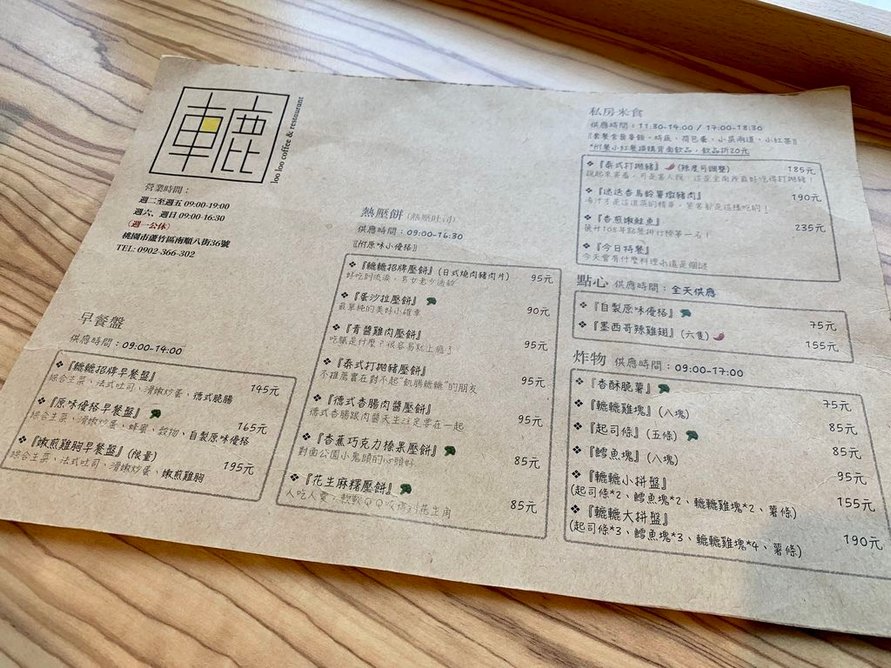 轆
loo loo coffee & restaurant
營業時間：
週二至週五 09:00-19:00
週六、週日 09:00-16:30
(週一公休)
桃園市蘆竹區南順八街36號
TEL: 0902-366-302
早餐盤
供應時間：09:00-14:00
❖『轆轆招牌早餐盤』 145元
綜合生菜、法式吐司、滑嫩炒蛋、德式脆腸
❖『原味優格早餐盤』 165元
綜合生菜、滑嫩炒蛋、蜂蜜、穀物、自製原味優格
❖『嫩煎雞胸早餐盤』(限量) 195元
綜合生菜、法式吐司、滑嫩炒蛋、嫩煎雞胸
熱壓餅 (熱壓吐司)
供應時間：09:00-16:30
『附原味小優格』
❖『轆轆招牌壓餅』(日式燒肉豬肉片) 95元
❖『蛋沙拉壓餅』 90元
最單純的美好小確幸
❖『青醬雞肉壓餅』 95元
吃膩是什麼？很容易玩上癮了
❖『泰式打拋豬壓餅』 95元
不推薦實在對不起"飢腸轆轆"的朋友
❖『德式香腸肉醬壓餅』 95元
德式香腸跟肉醬天生注定要在一起
❖『香蕉巧克力榛果壓餅』 85元
對面公園小鬼頭的心頭好
❖『花生麻糬壓餅』 85元
私房米食
供應時間：11:30-14:00 / 17:00-18:30
*附餐小紅餐須購買面飲品，飲品折20元
❖『泰式打拋豬』(辣度可調整) 185元
❖『迷迭香馬鈴薯燉豬肉』 190元
❖『香煎嫩鮭魚』 235元
❖『今日特餐』
今天會有什麼料理永遠是個謎
點心 供應時間：全天供應
❖『自製原味優格』 75元
❖『墨西哥辣雞翅』(六隻) 155元
炸物 供應時間：09:00-17:00
❖『香酥脆薯』 75元
❖『轆轆雞塊』(八塊) 85元
❖『起司條』(五條) 85元
❖『鱈魚塊』(八塊) 95元
❖『轆轆小拼盤』 155元
(起司條*2、鱈魚塊*2、轆轆雞塊*2、薯條)
❖『轆轆大拼盤』 190元
(起司條*3、鱈魚塊*3、轆轆雞塊*4、薯條)